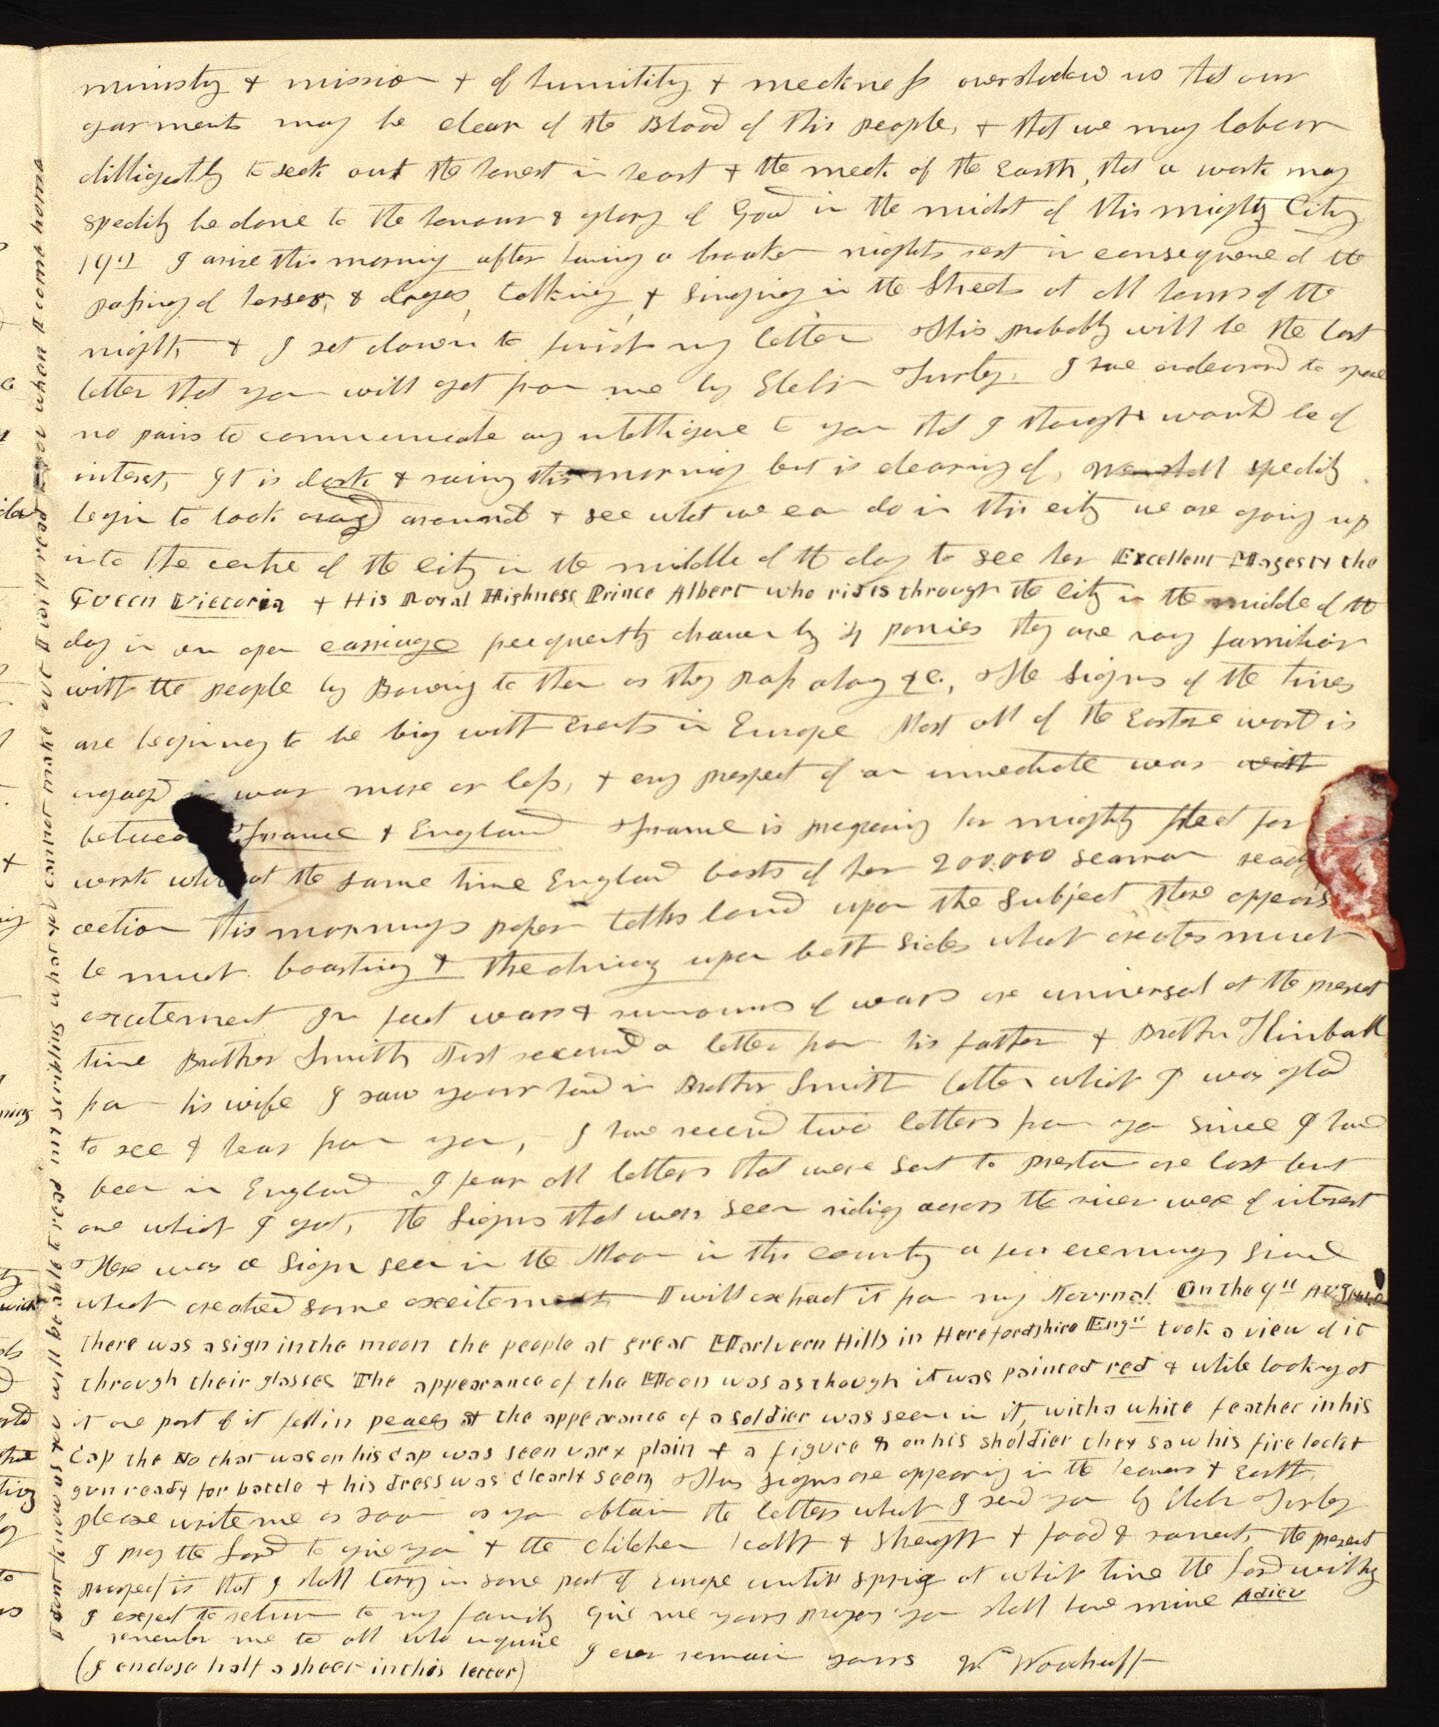 ministry & mission & of humility & meekness overshadow us that our
garments may be clear of the Blood of this people, & that we may labour
dilligently to seek out the honest in heart & the meek of the Earth, that a work may
spedily be done to the honour & glory of God in the midst of this mighty City
19th I arise this morning after having a broaken nights rest in consequence of the
passing of horses, & drayes, talking, & singing in the Streets at all hours of the
night, & I set down to finish my letter This probably will be the last
letter that you will get from me by Elder Turley. I have endeavored to spare
no pains to communicate any intelligence to you that I thought would be of
interest, It is dark & rainy this morning but is clearing of, We shall spedily
begin to look around & see what we can do in this city we are going up
into the centre of the city in the middle of the day to see her Excellent Magesty the
Queen Victoria & His Royal Highness Prince Albert who rides through the City in the middle of the
day in an open carriage frequently drawn by 4 ponies they are vary familiar
with the people by Bowing to them as they pass along &c., The signs of the times
are begining to be big with Events in Europe Most all of the Eastern world is
engaged in war more or less, & evry prospect of an immediate war with
between France & England France is prepareing her mighty fleet for
work while at the same time England boasts of her 200.000 seaman ready
action This mornings paper talks loud upon the Subject there appears
be much boasting & threatning upon both sides which creates much
excitement In fact wars & rumours of wars are universal at the present
time Brother Smith Just received a letter from his father & Brother Kimball
from his wife I saw your hand in Brother Smith letter which I was glad
to see & hear from you, I have received two letters from you since I have
been in England I fear all letters that were sent to Preston are lost but
one which I got, The Signs that was seen riding across the river were of interest
There was a Sign seen in the Moon in this country a few evenings since
which created some excitement I will extract it from my Journal On the 9th Aug 1840
there was a sign in the moon the people at great Marlvern Hills in Herefordshire Engd took a view of it
through their glasses The appearance of the Moon was as though it was painted red & while looking at
it one part of it fell in peaces & the appearance of a soldier was seen in it, with a white feather in his
Cap the No that was on his cap was seen vary plain & a figure 8 on his sholdier they saw his firelocket
gun ready for battle & his dress was clearly seen Thus signs are appearing in the heavens & Earth.
please write me as soon as you obtain the letters which I send you by Elder Turley
I pray the Lord to give you & the children health & strength & food & raiment, the present
prospect is that I shall tarry in some part of Europe untill spring at which time the Lord willing
I expect to return to my family give me your prayers you shall have mine Adieu
remember me to all who inquire I ever remain yours W Woodruff
(I enclose half a sheet in this letter)